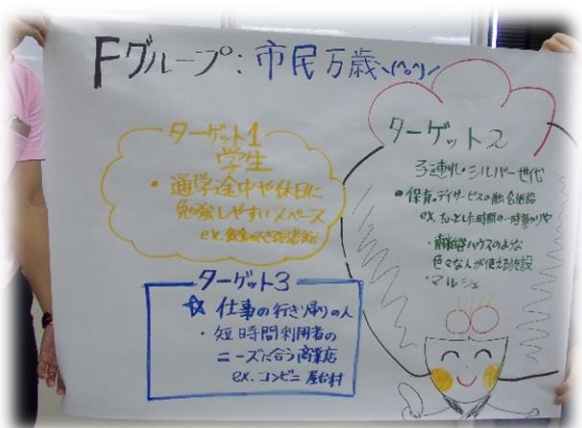 Fグループ：市民万歳＼(^o^)／
ターゲット1
学生
・通学途中や休日に
勉強しやすいスペース
ex.
ターゲット2
子連れ・シルバー世代
・保育、デイサービスの融合施設
ex. ちょっとした時間の一時預かりや
・ハウスのような
色々な人が使える施設
・マルシェ
ターゲット3
☆ 仕事の行き帰りの人
・短時間利用者の
ニーズに合う商業店
ex. コンビニ 屋台村